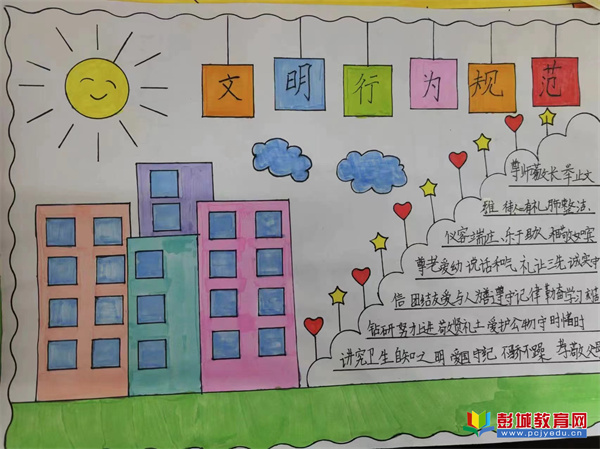 文明行为规范
尊师敬长 举止文
雅 待人有礼 服整洁、
仪容端庄、乐于助人 相敬如宾
尊老爱幼 说话和气 礼让三先 诚实守
信 团结友爱 与人为善 遵守纪律 勤奋学习 刻苦
钻研 努力上进 敬贤礼士 爱护公物 守时惜时
讲究卫生 自知之明 爱国守纪 不骄不躁 孝敬父母
彭城教育网
www.pcjyedu.cn